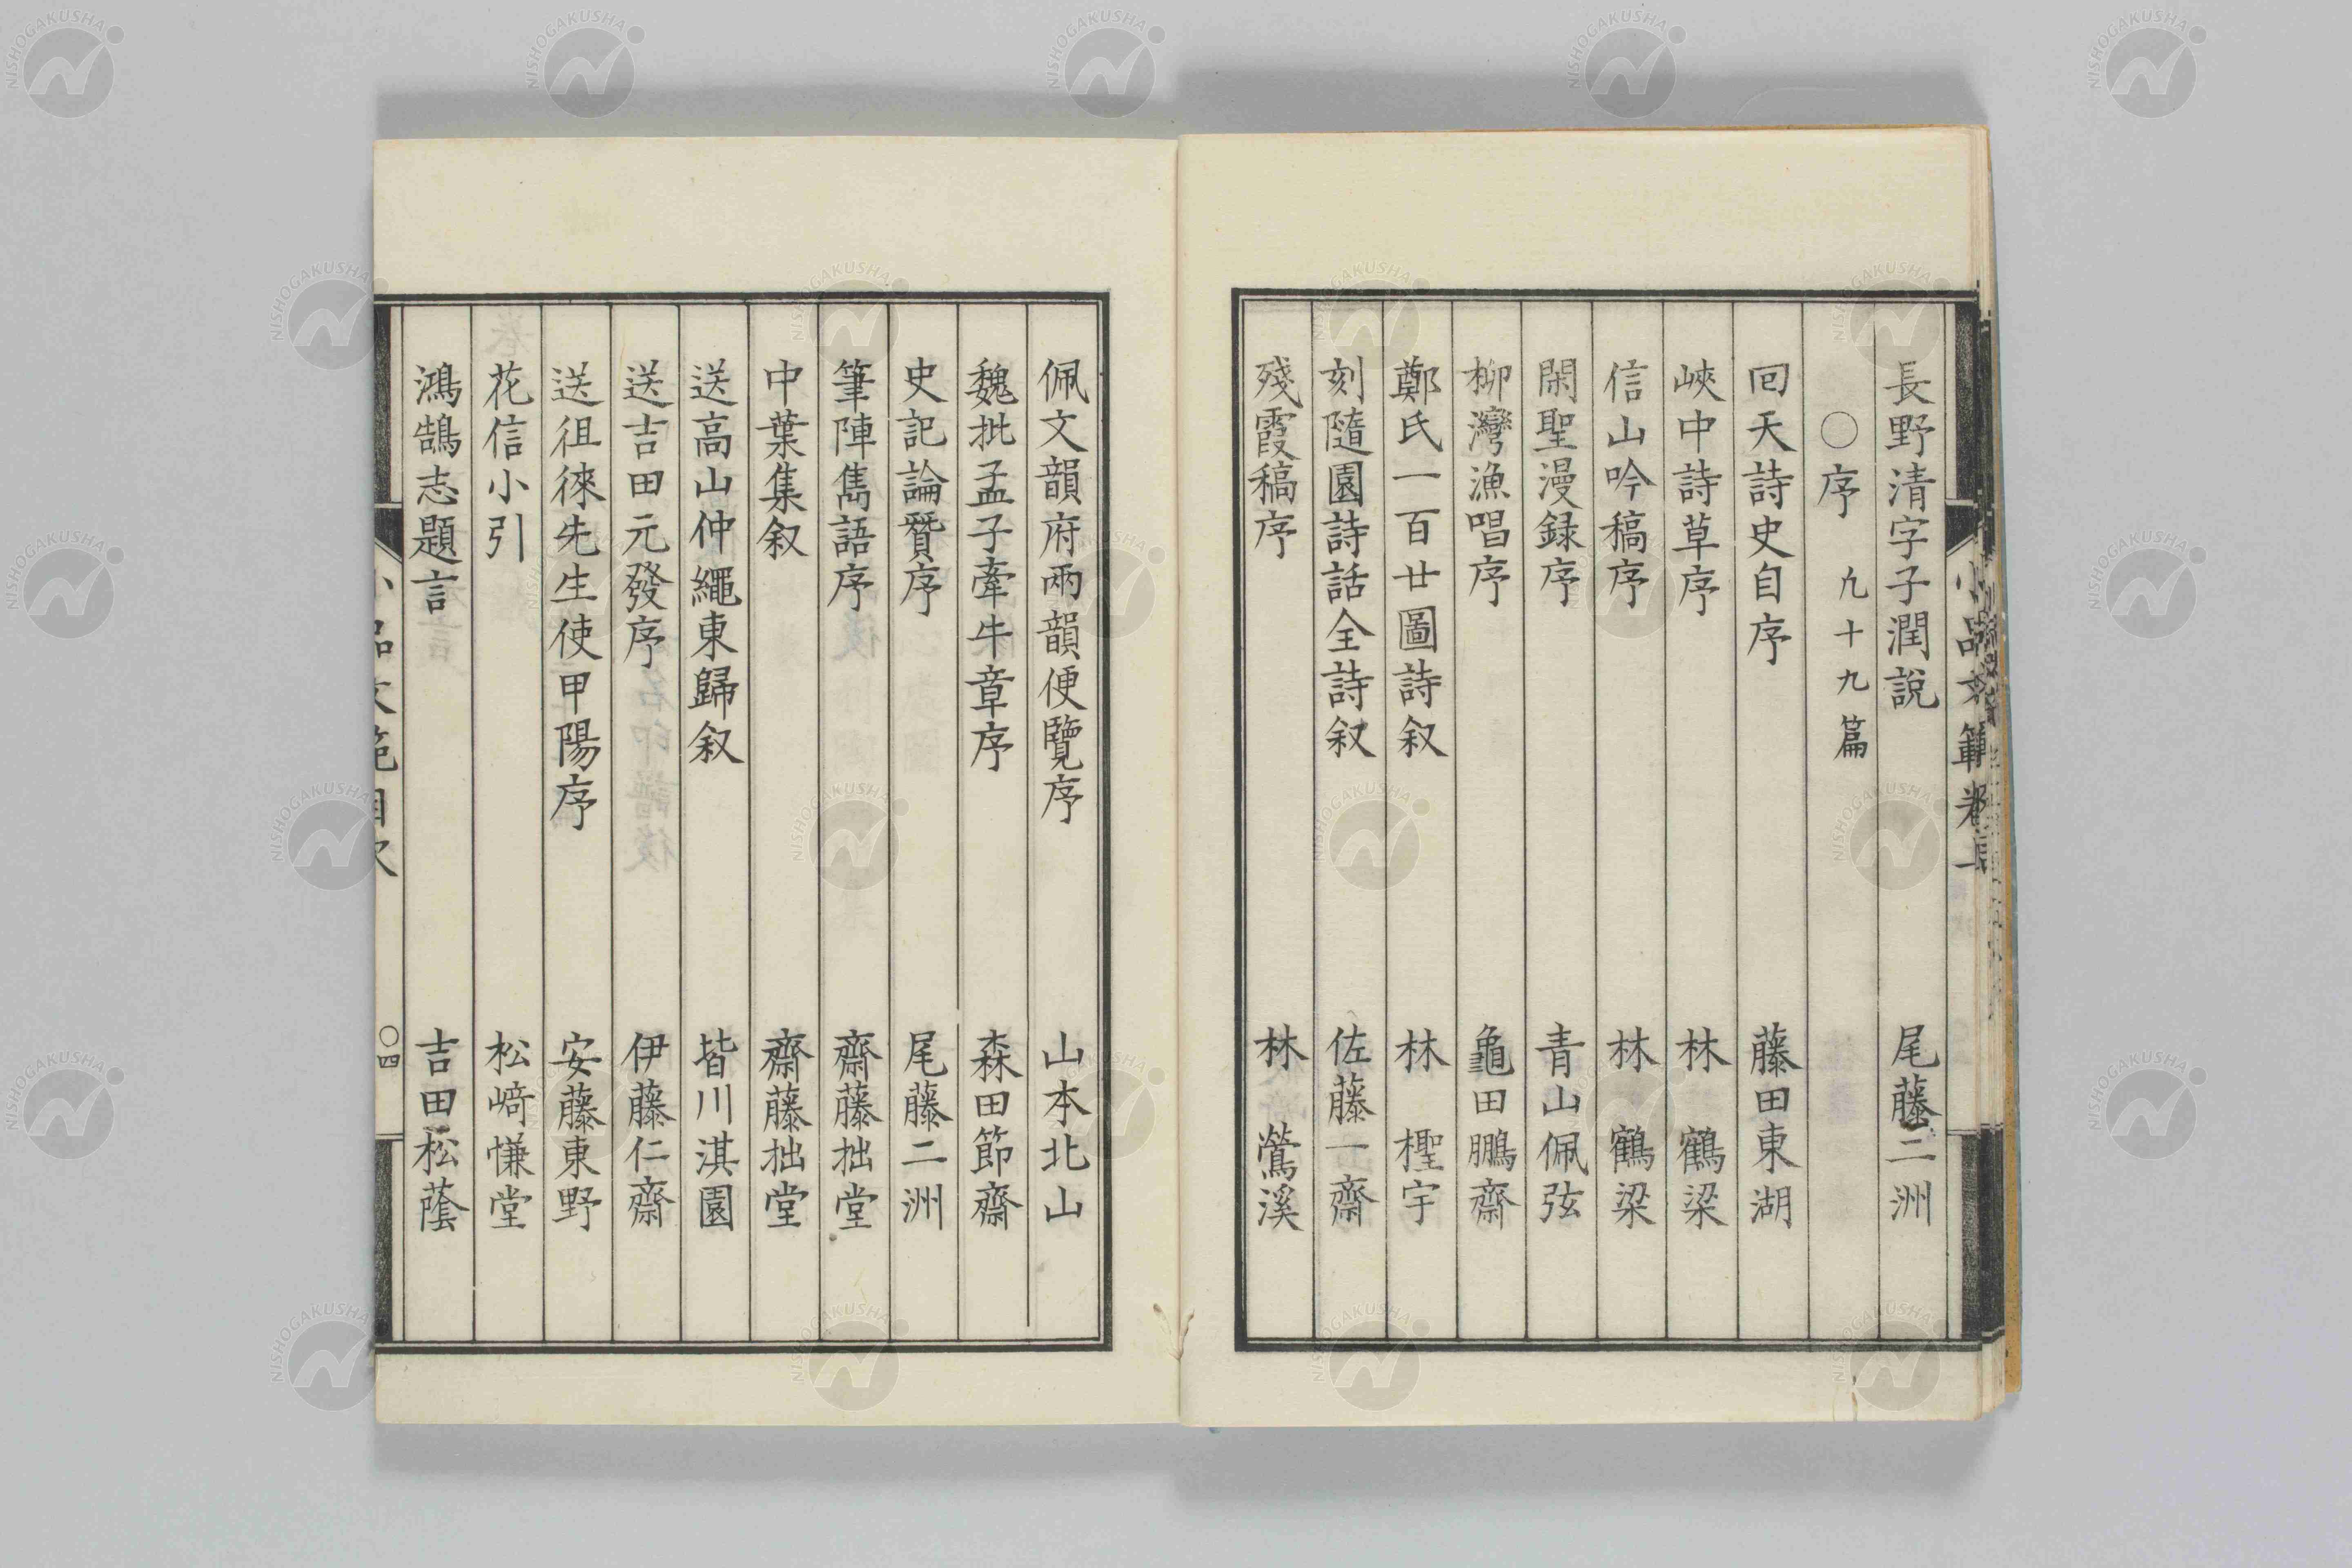 長野清字子潤說 尾藤二洲
○序 九十九篇
回天詩史自序 藤田東湖
峽中詩草序 林鶴梁
信山吟稿序 林鶴梁
閑聖漫録序 青山佩弦
柳灣漁唱序 龜田鵬齋
鄭氏一百廿圖詩叙 林檉宇
刻隨園詩話全詩叙 佐藤一齋
殘霞稿序 林鶯溪
佩文韻府兩韻便覽序 山本北山
魏批孟子牽牛章序 森田節齋
史記論贊序 尾藤二洲
筆陣雋語序 齋藤拙堂
中葉集叙 齋藤拙堂
送高山仲繩東歸叙 皆川淇園
送吉田元發序 伊藤仁齋
送徂徠先生使甲陽序 安藤東野
花信小引 松﨑慊堂
鴻鵠志題言 吉田松蔭
小品文範目次 ○四
NISHOGAKUSHA